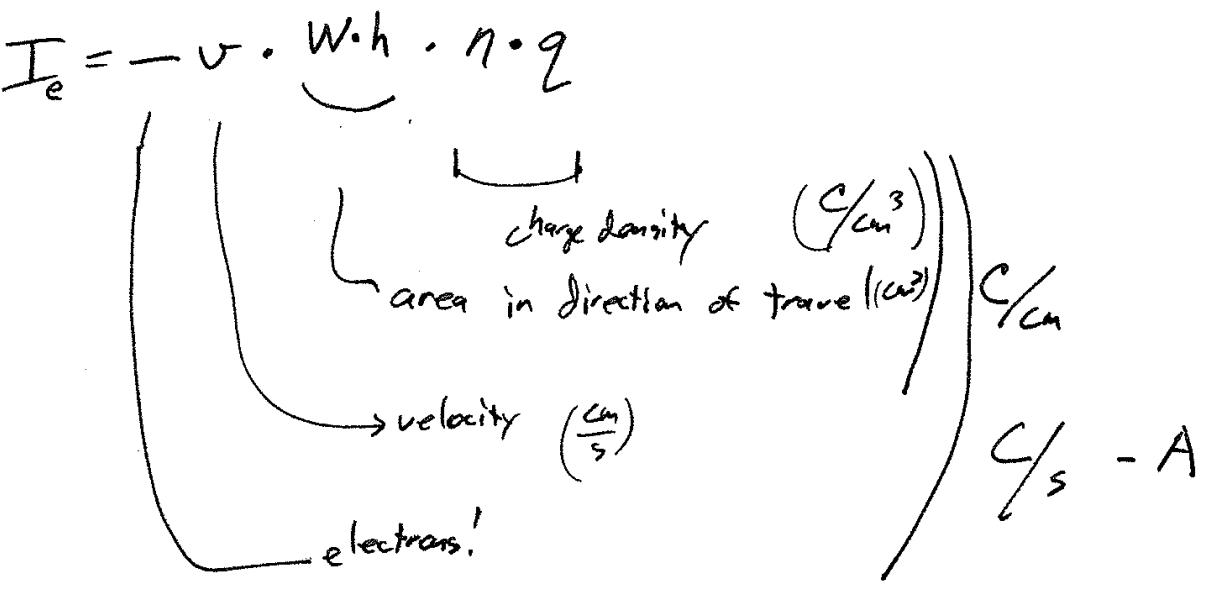 I_e = - v · W·h · n·q
charge density (C/cm³)
area in direction of travel (cm²)
C/cm
velocity (cm/s)
C/s - A
electrons!